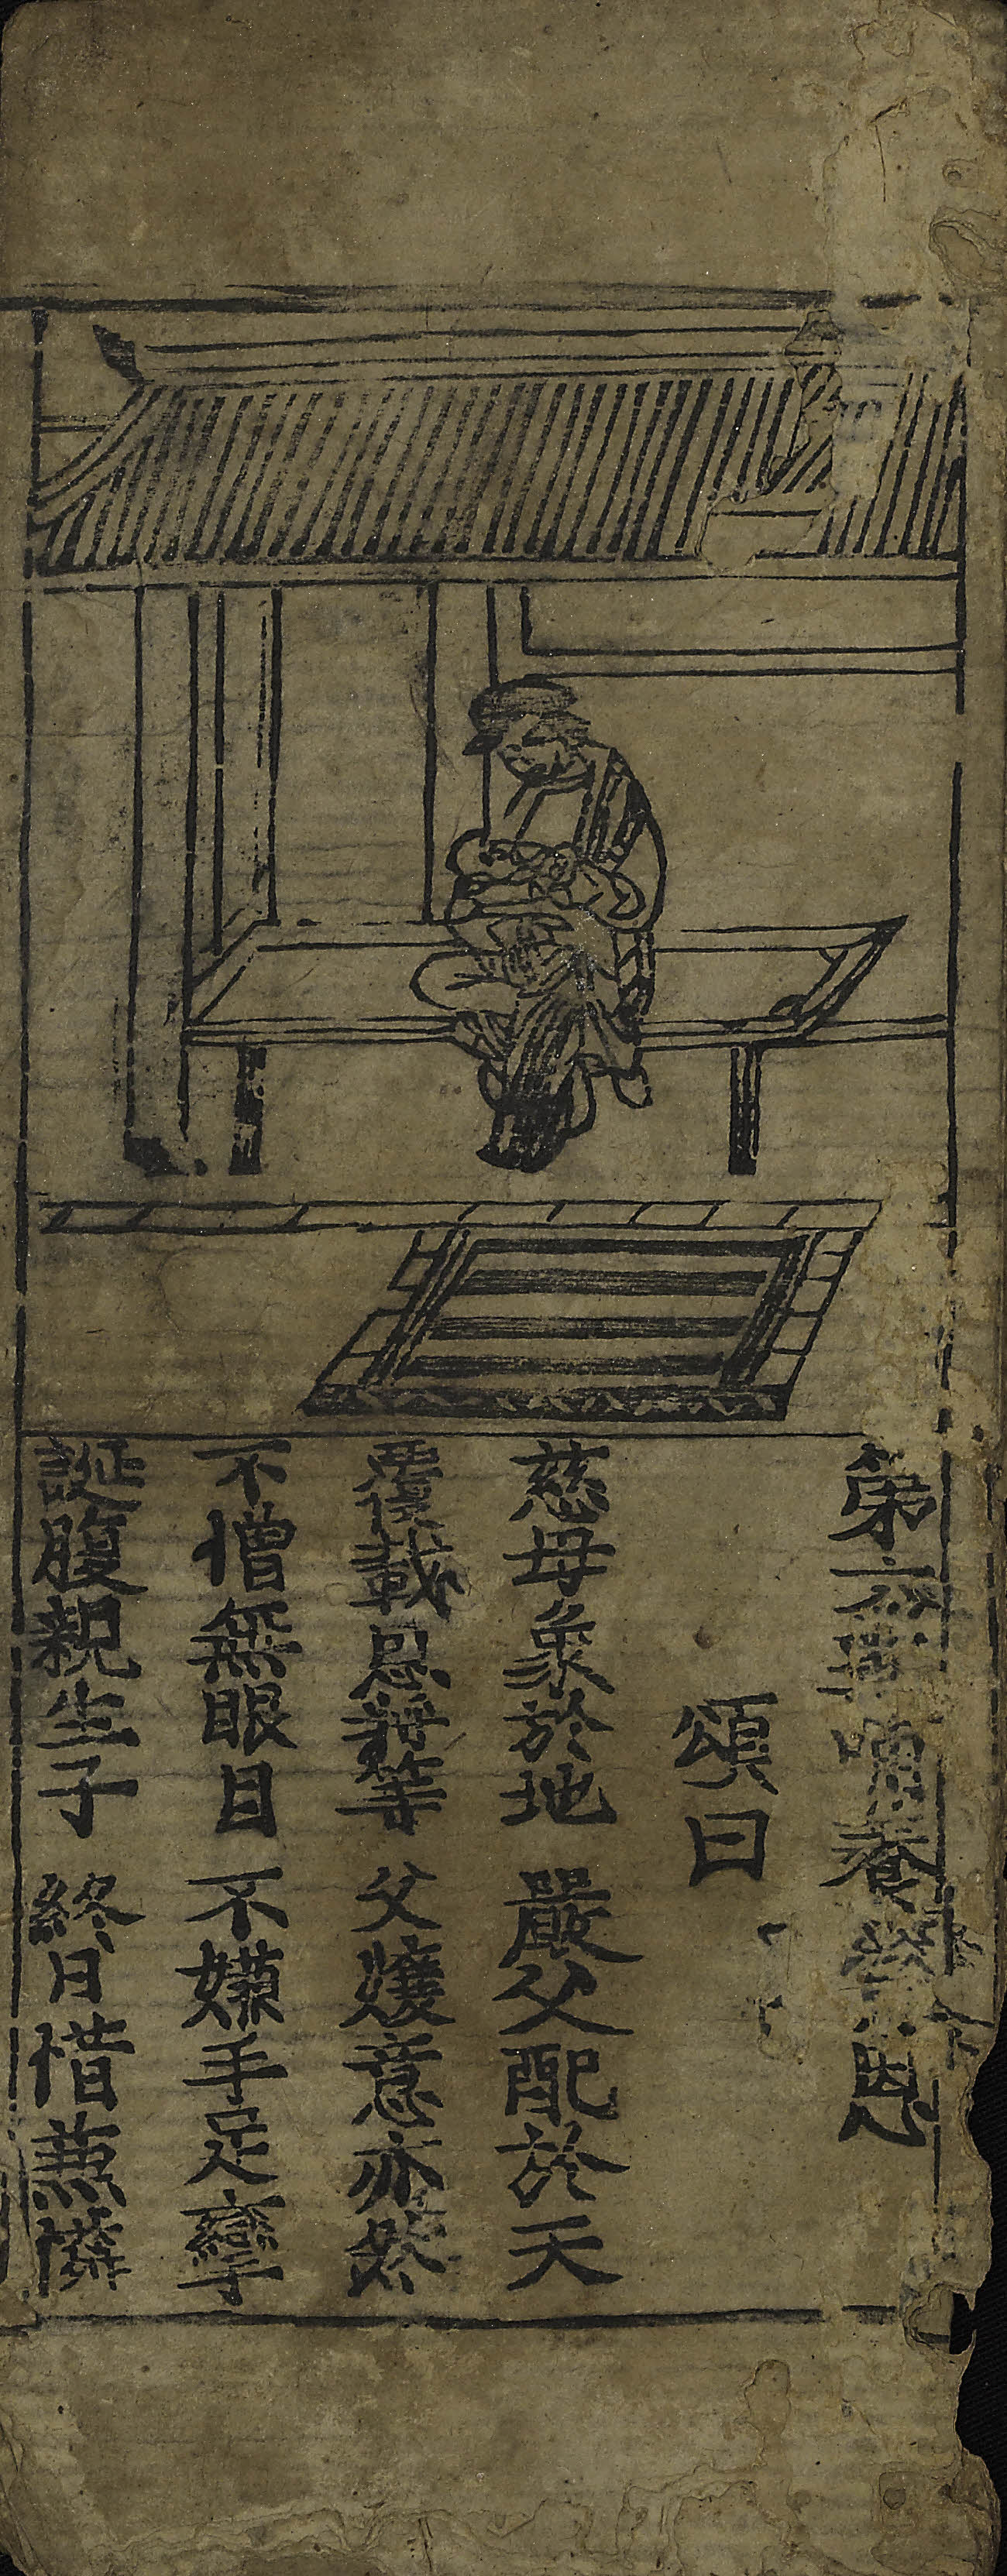 第六哺養恩
頌曰
慈母象於地 嚴父配於天
覆載恩將等 父孃意亦然
不憎無眼目 不嫌手足攣
誕腹親生子 終日惜兼憐